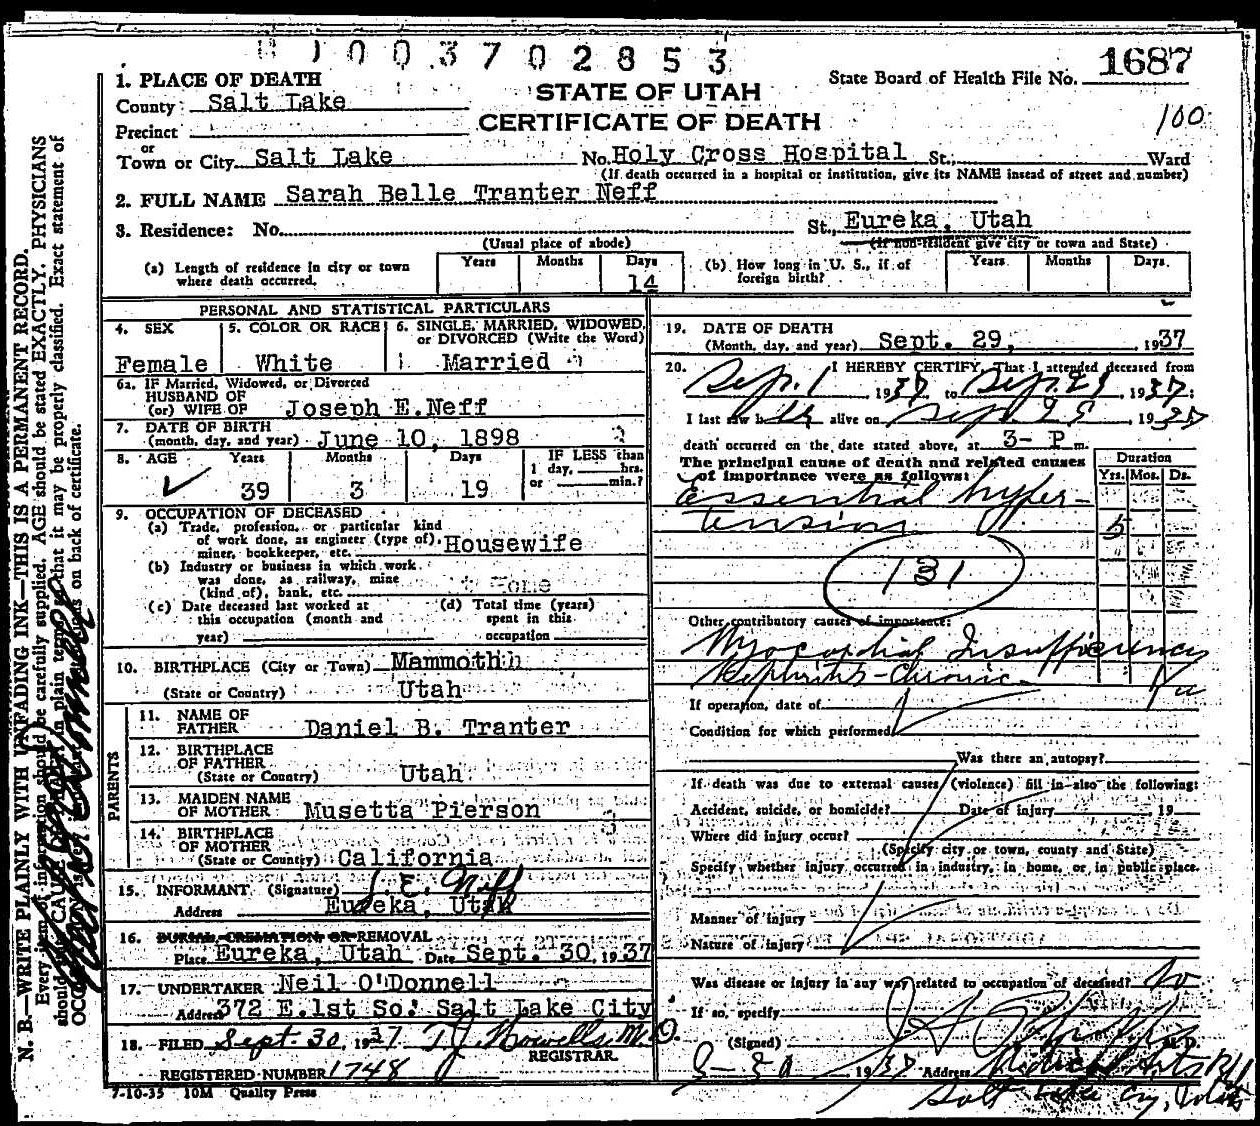 1003702853
1. PLACE OF DEATH
State Board of Health File No. 1687
County: Salt Lake
STATE OF UTAH
CERTIFICATE OF DEATH
100
Precinct
or
Town or City Salt Lake No. Holy Cross Hospital St., Ward
(If death occurred in a hospital or institution, give its NAME insead of street and number)
2. FULL NAME Sarah Belle Tranter Neff
3. Residence: No. St., Eureka, Utah
(Usual place of abode) (If non-resident give city or town and State)
(a) Length of residence in city or town where death occurred. Years Months Days 14
(b) How long in U. S., if of foreign birth? Years Months Days
PERSONAL AND STATISTICAL PARTICULARS
4. SEX Female
5. COLOR OR RACE White
6. SINGLE, MARRIED, WIDOWED, or DIVORCED (Write the Word) Married
6a. IF Married, Widowed, or Divorced
HUSBAND OF
(or) WIFE OF Joseph E. Neff
7. DATE OF BIRTH
(month, day, and year) June 10, 1898
8. AGE Years 39 Months 3 Days 19
IF LESS than
1 day, hrs.
or min.?
9. OCCUPATION OF DECEASED
(a) Trade, profession, or particular kind
of work done, as engineer (type of),
miner, bookkeeper, etc. Housewife
(b) Industry or business in which work
was done, as railway, mine
(kind of), bank, etc. Home
(c) Date deceased last worked at
this occupation (month and
year)
(d) Total time (years)
spent in this
occupation
10. BIRTHPLACE (City or Town) Mammoth
(State or Country) Utah
PARENTS
11. NAME OF
FATHER Daniel B. Tranter
12. BIRTHPLACE
OF FATHER
(State or Country) Utah
13. MAIDEN NAME
OF MOTHER Musetta Pierson
14. BIRTHPLACE
OF MOTHER
(State or Country) California
15. INFORMANT (Signature) J. E. Neff
Address Eureka, Utah
16. BURIAL, CREMATION, OR REMOVAL
Place Eureka, Utah Date Sept. 30, 1937
17. UNDERTAKER Neil O'Donnell
Address 372 E. 1st So. Salt Lake City
18. FILED Sept. 30, 1937 T. J. Howells, M.D.
REGISTRAR
REGISTERED NUMBER 1748
7-10-35 10M Quality Press
19. DATE OF DEATH
(Month, day, and year) Sept. 29, 1937
20. I HEREBY CERTIFY, That I attended deceased from
Sep. 1 1937 to Sep. 29, 1937:
I last saw her alive on Sep 29, 1937
death occurred on the date stated above, at 3- P m.
The principal cause of death and related causes
of importance were as follows:
Duration
Yrs. Mos. Ds.
essential hyper-
tension 5
131
Other contributory causes of importance:
Myocardial Insufficiency
Nephritis - Chronic
If operation, date of
Condition for which performed
Was there an autopsy?
If death was due to external causes (violence) fill in also the following:
Accident, suicide, or homicide? Date of injury 19
Where did injury occur?
(Specify city or town, county and State)
Specify whether injury occurred in industry, in home, or in public place.
Manner of injury
Nature of injury
Was disease or injury in any way related to occupation of deceased? No
If so, specify
(Signed) M.D.
9-30 1937 Address Medical Arts Bld
Salt Lake Cy, Utah
N. B.—WRITE PLAINLY WITH UNFADING INK—THIS IS A PERMANENT RECORD.
Every item of information should be carefully supplied. AGE should be stated EXACTLY. PHYSICIANS
should state CAUSE OF DEATH in plain terms, so that it may be properly classified. Exact statement of
OCCUPATION is very important. See instructions on back of certificate.